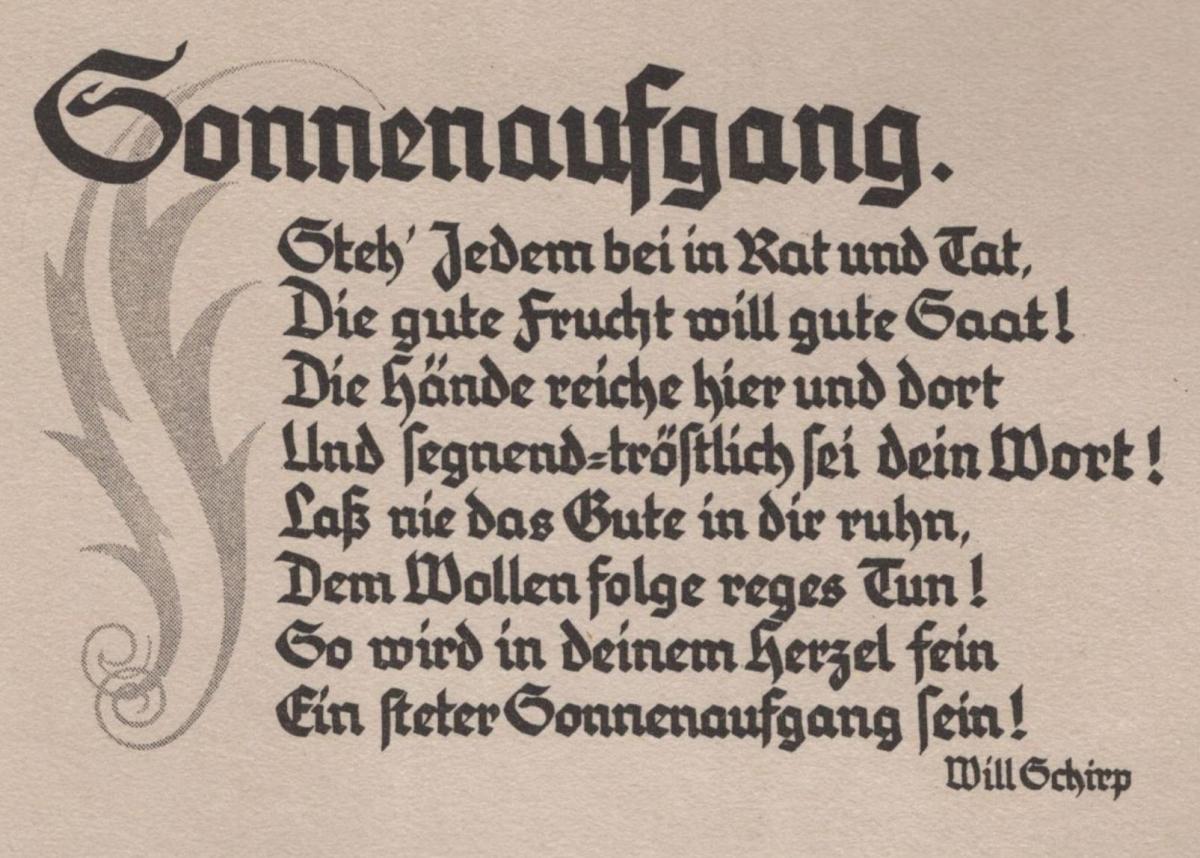 Sonnenaufgang.
Steh' Jedem bei in Rat und Tat,
Die gute Frucht will gute Saat!
Die Hände reiche hier und dort
Und segnend=tröstlich sei dein Wort!
Laß nie das Gute in dir ruhn,
Dem Wollen folge reges Tun!
So wird in deinem Herzel fein
Ein steter Sonnenaufgang sein!
Will Schirp